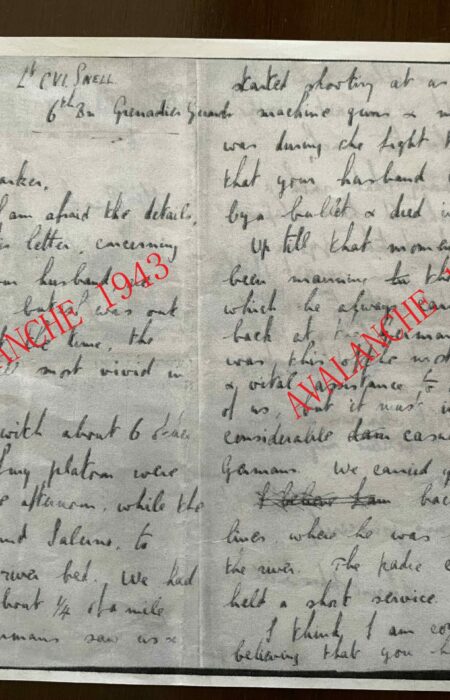 Lt CVI. SNELL.
6th Bn Grenadier Guards
arker,
I am afraid the details,
letter, concerning
husband
but was out
time, the
most vivid in
with about 6 other
my platoon were
afternoon, while the
Salerno, to
river bed. We had
about 1/4 of a mile
Germans saw us &
started shooting at us
machine guns & m
was during the fight t
that your husband
by a bullet & died i
Up till that mome
been manning the
which he always car
back at the German
was this of the most
& vital assistance to
of us, but it must
considerable casu
Germans. We carried
I believe I am bac
lines, where he was
the river. The padre
held a short service
I think I am co
believing that you h
AVALANCHE 1943
AVALANCHE 1